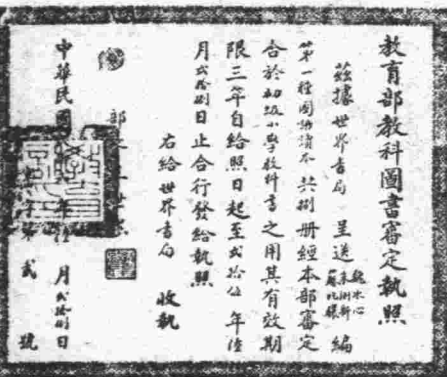 教育部教科圖書審定執照
茲據世界書局呈送魏冰心編
第一種國語讀本共捌冊經本部審定
合於初級小學教科書之用其有效期
限三年自給照日起至貳拾伍年陸
月貳拾捌日止合行發給執照
右給世界書局收執
部長王世
中華民國年陸月貳拾捌日
貳號